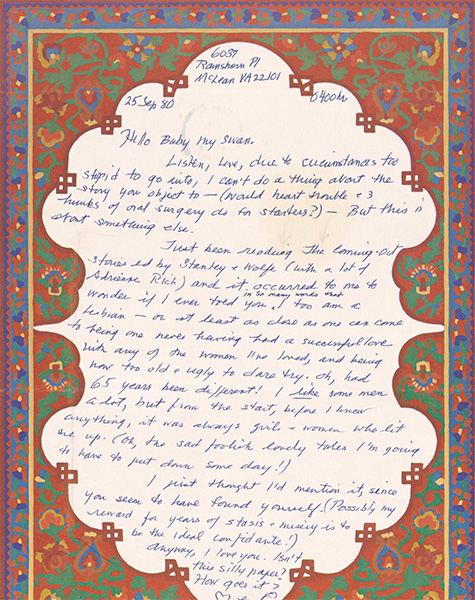 6037
Ramshorn Pl
McLean VA 22101
25 Sep 80 0400 hr
Hello Baby my Swan.
Listen, Love, due to circumstances too
stupid to go into, I can't do a thing about the
story you object to — (Would heart trouble + 3
hunks of oral surgery do for starters?) — But this is
about something else.
Just been reading The Coming-Out
Stories ed by Stanley + Wolfe (with a lot of
Adrienne Rich) and it occurred to me to
wonder if I ever told you in so many words that I too am a
Lesbian — or at least as close as one can come
to being one never having had a successful love
with any of the women I've loved, and being
now too old + ugly to dare try. Oh, had
65 years been different! I like some men
a lot, but from the start, before I knew
anything, it was always girls + women who lit
me up. (Oh, the sad foolish lonely tales I'm going
to have to put down some day!)
I just thought I'd mention it, since
you seem to have found yourself. (Possibly my
reward for years of stasis + misery is to
be the ideal confidante!)
Anyway, I love you. Isn't
this silly paper?
How goes it?